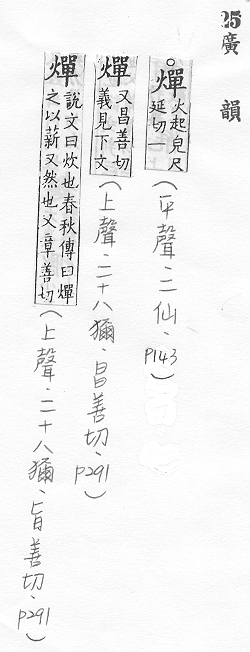 25廣韻
。燀火起皃尺延切一(平聲.二仙、P143)
燀又昌善切義見下文(上聲.二十八獮、昌善切、p291)
燀說文曰炊也春秋傳曰燀之以薪又然也又章善切(上聲.二十八獮、旨善切、p291)